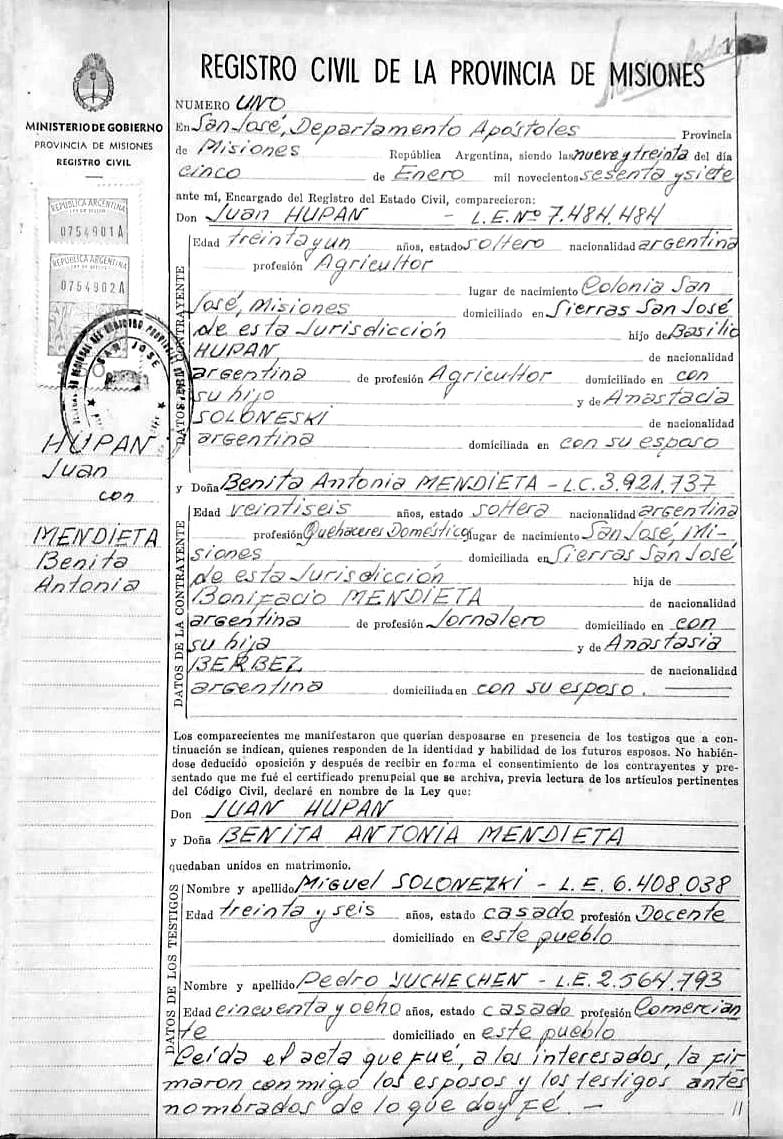 REGISTRO CIVIL DE LA PROVINCIA DE MISIONES
MINISTERIO DE GOBIERNO
PROVINCIA DE MISIONES
REGISTRO CIVIL
REPUBLICA ARGENTINA
0754901A
REPUBLICA ARGENTINA
0754902A
SAN JOSE
HUPAN
Juan
con
MENDIETA
Benita
Antonia
NUMERO UNO
En San José, Departamento Apóstoles Provincia
de Misiones República Argentina, siendo las nueve y treinta del día
cinco de Enero mil novecientos sesenta y siete
ante mí, Encargado del Registro del Estado Civil, comparecieron:
Don Juan HUPAN - L.E. Nº 7.484.484
DATOS DEL CONTRAYENTE
Edad treinta y un años, estado soltero nacionalidad argentina
profesión Agricultor
lugar de nacimiento Colonia San
José, Misiones domiciliado en Sierras San José
de esta Jurisdicción hijo de Basilio
HUPAN, de nacionalidad
argentina de profesión Agricultor domiciliado en con
su hijo y de Anastacia
SOLONESKI de nacionalidad
argentina domiciliada en con su esposo
y Doña Benita Antonia MENDIETA - L.C. 3.921.737
DATOS DE LA CONTRAYENTE
Edad veintiseis años, estado soltera nacionalidad argentina
profesión Quehaceres Domésticos lugar de nacimiento San José, Mi-
siones domiciliada en Sierras San José
de esta Jurisdicción hija de
Bonifacio MENDIETA de nacionalidad
argentina de profesión Jornalero domiciliado en con
su hija y de Anastasia
BERBEZ de nacionalidad
argentina domiciliada en con su esposo.
Los comparecientes me manifestaron que querían desposarse en presencia de los testigos que a con-
tinuación se indican, quienes responden de la identidad y habilidad de los futuros esposos. No habién-
dose deducido oposición y después de recibir en forma el consentimiento de los contrayentes y pre-
sentado que me fué el certificado prenupcial que se archiva, previa lectura de los artículos pertinentes
del Código Civil, declaré en nombre de la Ley que:
Don JUAN HUPAN
y Doña BENITA ANTONIA MENDIETA
quedaban unidos en matrimonio.
DATOS DE LOS TESTIGOS
Nombre y apellido Miguel SOLONEZKI - L.E. 6.408.038
Edad treinta y seis años, estado casado profesión Docente
domiciliado en este pueblo
Nombre y apellido Pedro YUCHECHEN - L.E. 2.564.793
Edad cincuenta y ocho años, estado casado profesión Comercian
te domiciliado en este pueblo
Leída el acta que fué, a los interesados, la fir
maron conmigo los esposos y los testigos antes
nombrados de lo que doy fé. - //